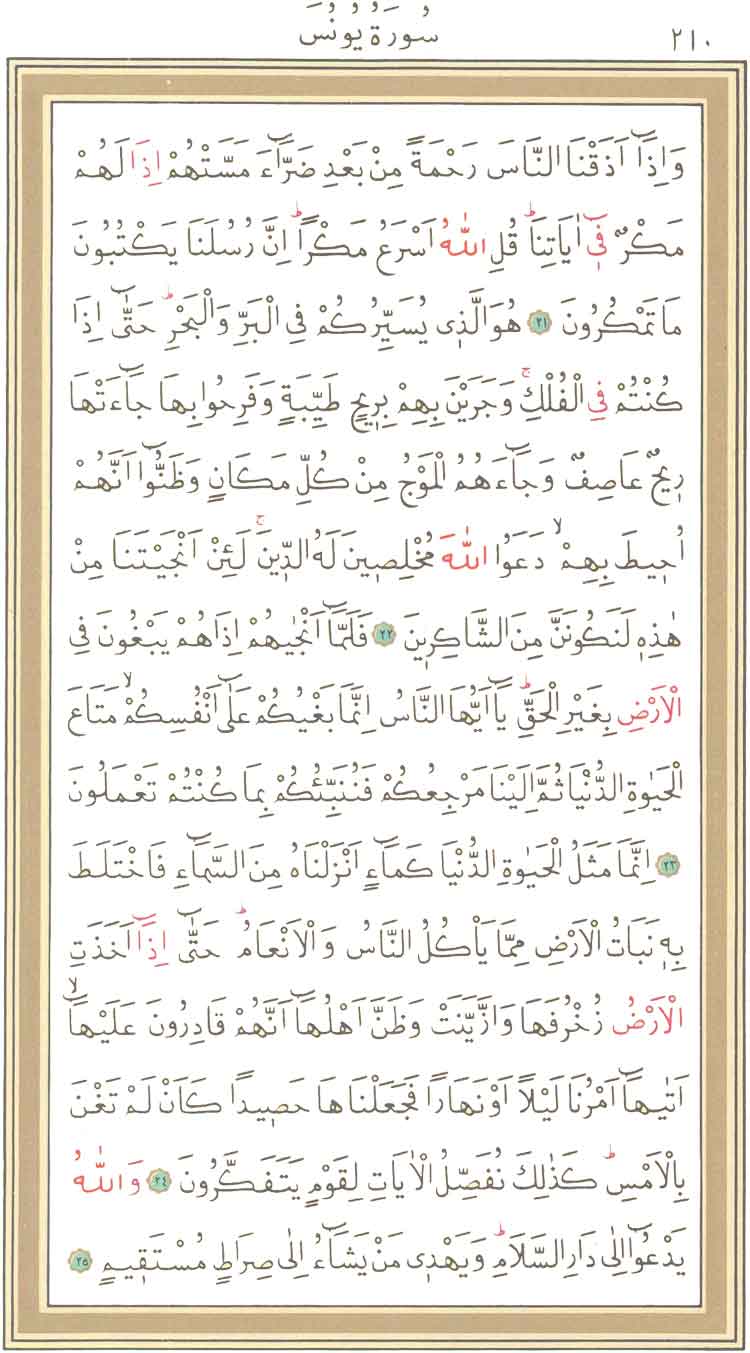 ٢١٠
سُورَةُ يُونُسَ
وَاِذَٓا اَذَقْنَا النَّاسَ رَحْمَةً مِنْ بَعْدِ ضَرَّٓاءَ مَسَّتْهُمْ اِذَا لَهُمْ
مَكْرٌ ف۪ٓي اٰيَاتِنَاۜ قُلِ اللّٰهُ اَسْرَعُ مَكْراًۜ اِنَّ رُسُلَنَا يَكْتُبُونَ
مَا تَمْكُرُونَ ﴿٢١﴾ هُوَ الَّذ۪ي يُسَيِّرُكُمْ فِي الْبَرِّ وَالْبَحْرِۜ حَتّٰٓى اِذَا
كُنْتُمْ فِي الْفُلْكِۚ وَجَرَيْنَ بِهِمْ بِر۪يحٍ طَيِّبَةٍ وَفَرِحُوا بِهَا جَٓاءَتْهَا
ر۪يحٌ عَاصِفٌ وَجَٓاءَهُمُ الْمَوْجُ مِنْ كُلِّ مَكَانٍ وَظَنُّٓوا اَنَّهُمْ
اُح۪يطَ بِهِمْۙ دَعَوُا اللّٰهَ مُخْلِص۪ينَ لَهُ الدّ۪ينَۚ لَئِنْ اَنْجَيْتَنَا مِنْ
هٰذِه۪ لَنَكُونَنَّ مِنَ الشَّاكِر۪ينَ ﴿٢٢﴾ فَلَمَّٓا اَنْجٰيهُمْ اِذَا هُمْ يَبْغُونَ فِي
الْاَرْضِ بِغَيْرِ الْحَقِّۜ يَٓا اَيُّهَا النَّاسُ اِنَّمَا بَغْيُكُمْ عَلٰٓى اَنْفُسِكُمْۙ مَتَاعَ
الْحَيٰوةِ الدُّنْيَا ثُمَّ اِلَيْنَا مَرْجِعُكُمْ فَنُنَبِّئُكُمْ بِمَا كُنْتُمْ تَعْمَلُونَ
﴿٢٣﴾ اِنَّمَا مَثَلُ الْحَيٰوةِ الدُّنْيَا كَمَٓاءٍ اَنْزَلْنَاهُ مِنَ السَّمَٓاءِ فَاخْتَلَطَ
بِه۪ نَبَاتُ الْاَرْضِ مِمَّا يَأْكُلُ النَّاسُ وَالْاَنْعَامُۜ حَتّٰٓى اِذَٓا اَخَذَتِ
الْاَرْضُ زُخْرُفَهَا وَازَّيَّنَتْ وَظَنَّ اَهْلُهَٓا اَنَّهُمْ قَادِرُونَ عَلَيْهَٓاۙ
اَتٰيهَٓا اَمْرُنَا لَيْلاً اَوْ نَهَاراً فَجَعَلْنَاهَا حَص۪يداً كَاَنْ لَمْ تَغْنَ
بِالْاَمْسِۜ كَذٰلِكَ نُفَصِّلُ الْاٰيَاتِ لِقَوْمٍ يَتَفَكَّرُونَ ﴿٢٤﴾ وَاللّٰهُ
يَدْعُٓوا اِلٰى دَارِ السَّلَامِۜ وَيَهْد۪ي مَنْ يَشَٓاءُ اِلٰى صِرَاطٍ مُسْتَق۪يمٍ ﴿٢٥﴾